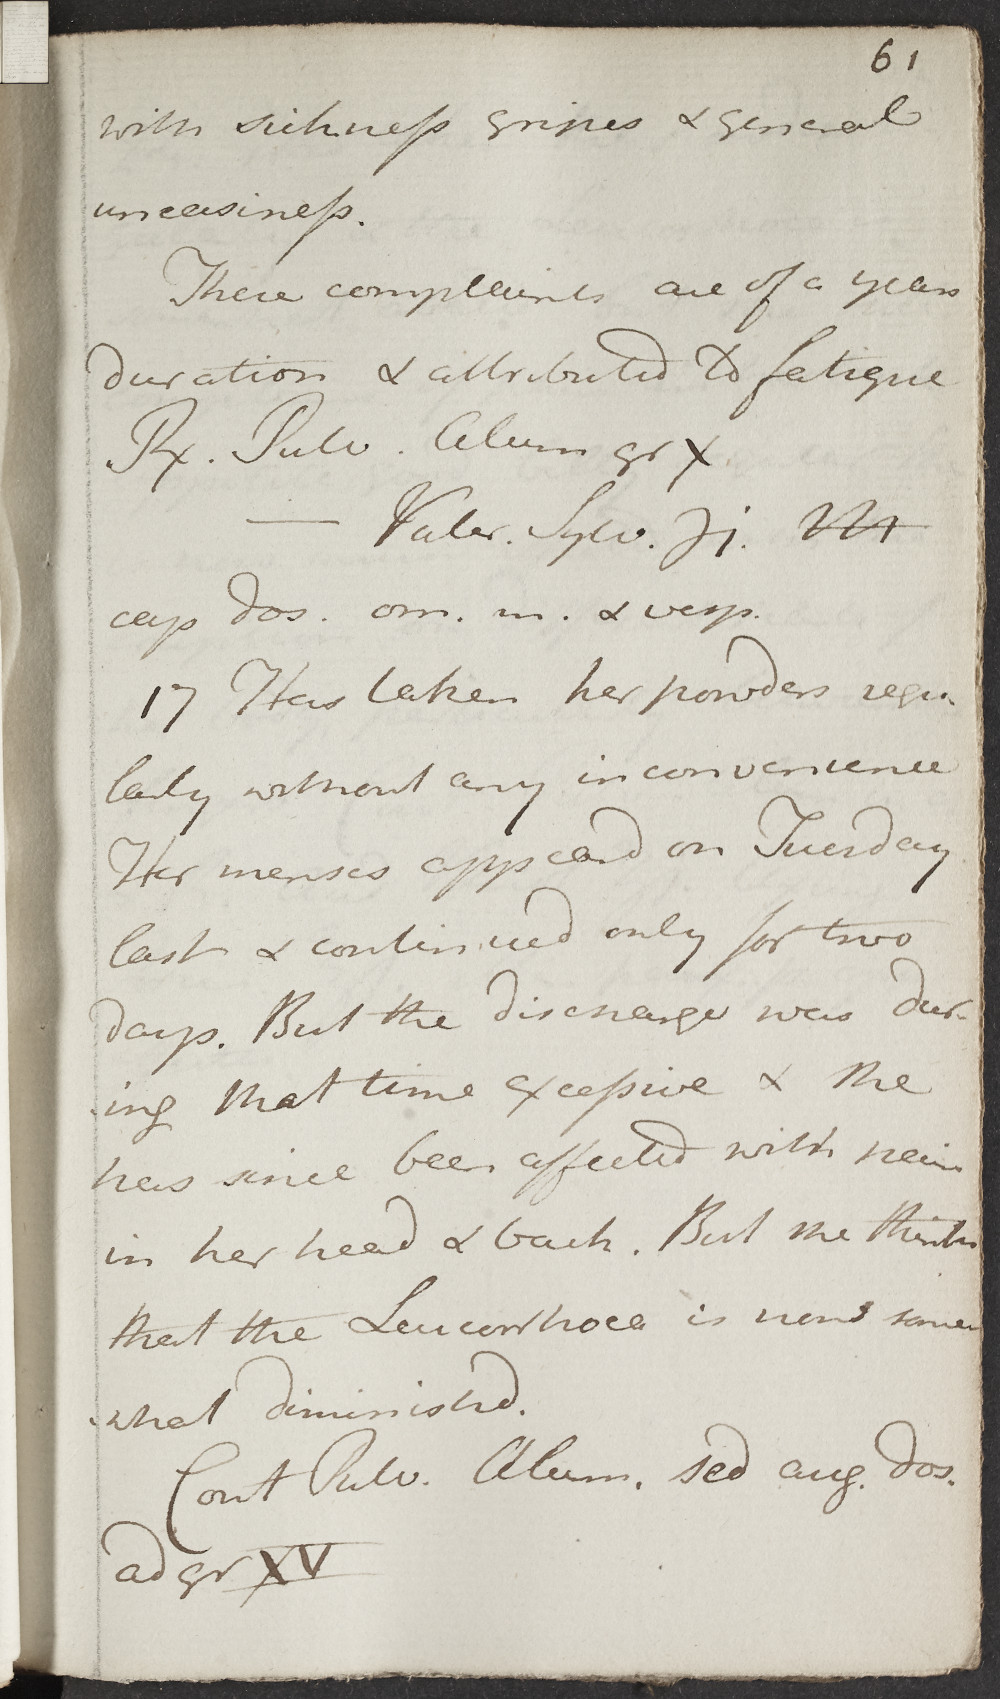 61
with sickness gripes & general
uneasiness.
These complaints are of a years
duration & attributed to fatigue
Rx. Pulv. Alum gr x
— Valer. Sylv. ʒj. M
cap dos. om. m. & vesp.
17 Has taken her powders regu-
larly without any inconvenience
Her menses appeard on Tuesday
last & continued only for two
days. But the discharge was dur-
ing that time excessive & she
has since been affected with pain
in her head & back. But she thinks
that the Leucorrhoea is now some
what diminishd.
Cont Pulv. Alum. sed aug. dos.
ad gr XV